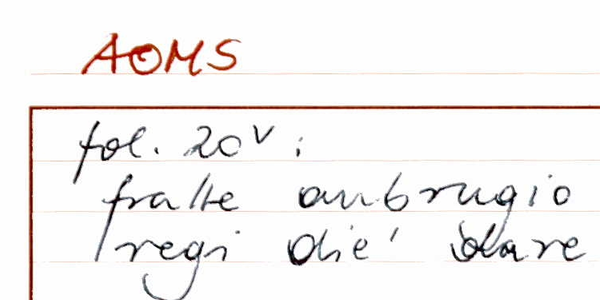 AOMS
fol. 20v:
fratte anbrugio
regi die' dare